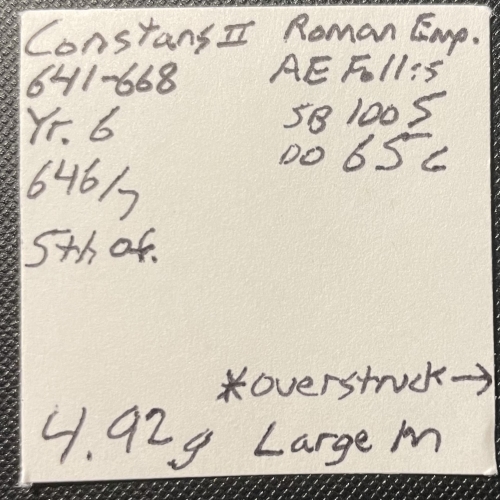 Constans II Roman Emp.
641-668 AE Follis
Yr. 6 SB 1005
646/7 DO 65c
5th of.
*overstruck →
4.92g Large m